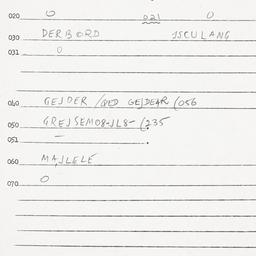 020 0 021 0
030 DERBORD JSCULANG
031 0
040 GEJDER /QED GEJDEAR (056
050 GREJSEM08-JL8- (235
051 —
060 MAJLELE
070 0